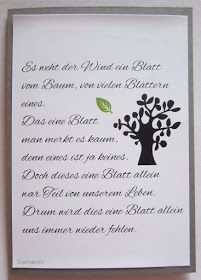 Es weht der Wind ein Blatt
vom Baum, von vielen Blättern
eines.
Das eine Blatt
man merkt es kaum,
denn eines ist ja keines.
Doch dieses eine Blatt allein
war Teil von unserem Leben.
Drum wird dies eine Blatt allein
uns immer wieder fehlen.